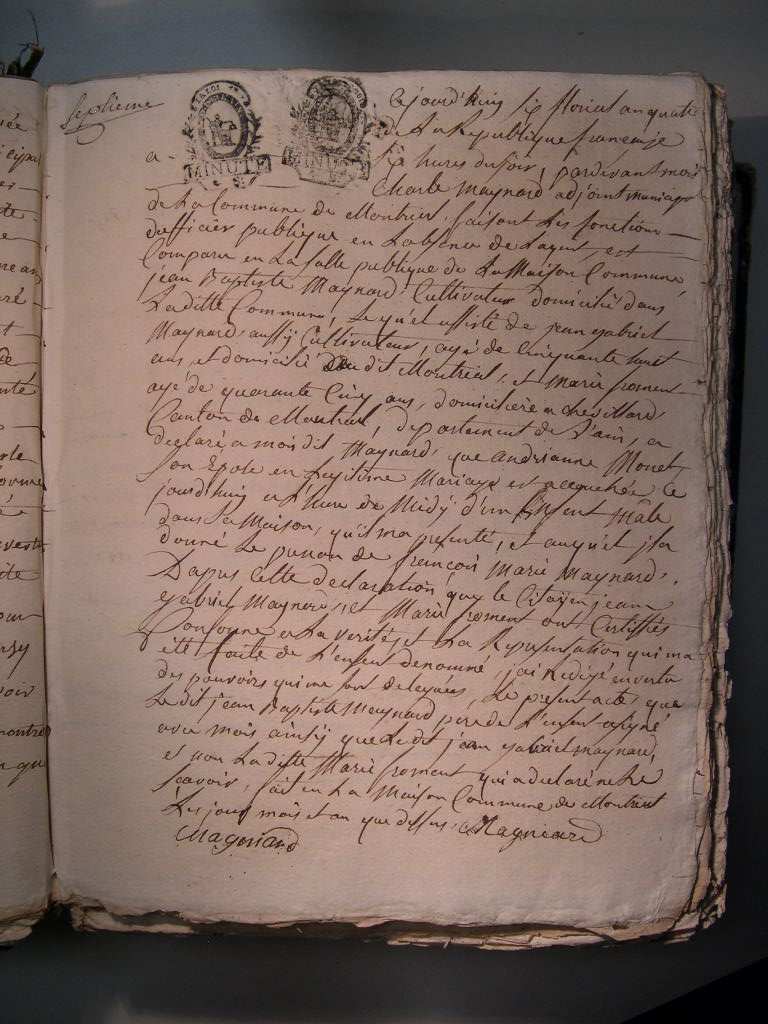 Septieme
LA LOI
MINUTE
MINUTE
Cejourd'huy six floreal an quatre
de la Republique francaise
a - six hures du soir, pardevant moi
Charle Maynard adjoint municipal
de la Commune de Montreal, faisant les fonctions
dofficier publique en labsence de lagent, est
Comparu en la salle publique de la Maison Commune,
jean Baptiste Maynard Cultivateur domicilié dans
Laditte Commune, lequ'el assisté de jean gabriel
Maynard aussy Cultivateur, agé de Cinquante huit
ans et domicilié dudit Montreal, et Marie froment
agé de quarante Cinq ans, domiciliere a Chevillard,
Canton de Montreal, departement de L'ain, a
declaré a moi dit Maynard que andrianne Monet,
son Epose en legitime Mariage est accouchée Ce
jourd'huy a l'hure de Midy d'un Enfent Mâle
dans sa Maison, qu'il ma presenté, et auqu'el il a
donné le prenon de françois Marie Maynard,
Dapres Cette declaration que le Citoyen jean
gabriel Maynard, et Marie froment ont Certiffiés
Conforme a La verité, et La Representation qui ma
été faite de L'enfent denommé, j'ai Redigé en vertu
des pouvoirs qui me sont delegués, Le present acte, que
Ledit jean Baptiste Maynard pere de L'enfent a signé
avec mois ainsy que Ledit jean gabriel Maynard,
et non Laditte Marie froment qui a declaré ne le
scavoir, fait en La Maison Commune de Montreal
les jour mois et an que dessus. Magniard
Magniard